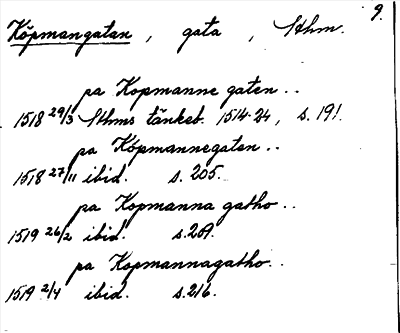 9.
Köpmangatan, gata, Sthm.
pa Kopmanne gaten..
1518 29/3 Sthms tänkeb. 1514-24, s. 191.
pa Köpmannegaten..
1518 27/11 ibid. s. 205.
pa Kopmanna gatho..
1519 26/2 ibid. s. 209.
pa Kopmannagatho..
1519 2/4 ibid. s. 216.